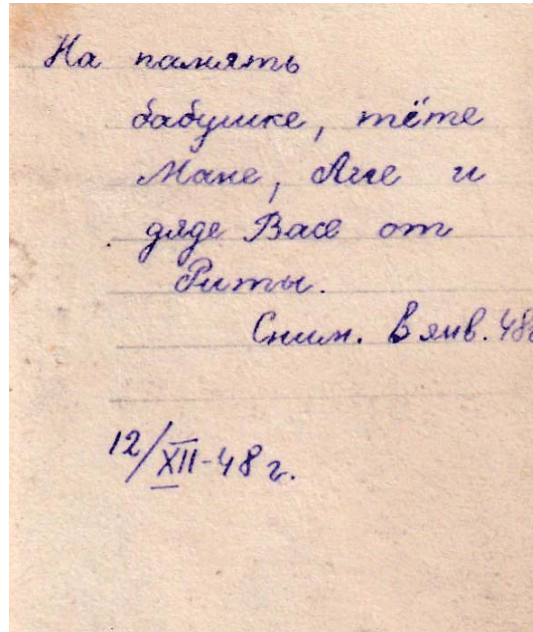 На память
бабушке, тёте
Мане, Але и
дяде Васе от
Риты.
Сним. в янв. 48г
12/XII-48 г.